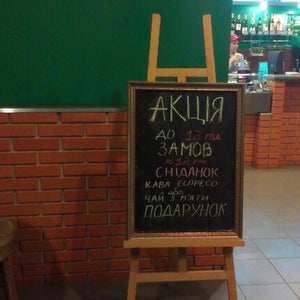 АКЦІЯ
ДО 12 год
ЗАМОВ
СНІДАНОК
КАВА ЕСПРЕСО
або
ЧАЙ З М'ЯТИ
ПОДАРУНОК